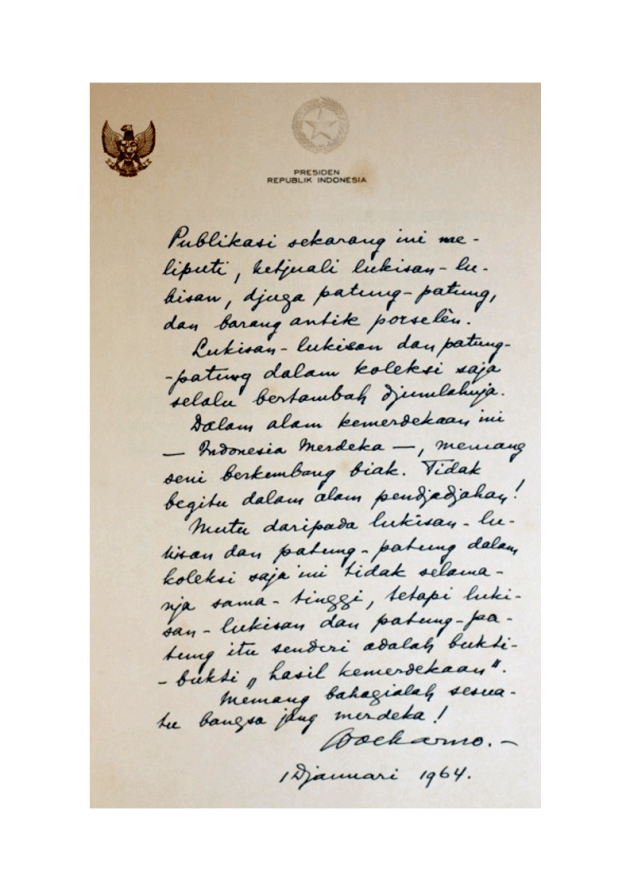 PRESIDEN
REPUBLIK INDONESIA
Publikasi sekarang ini me-
liputi, ketjuali lukisan-lu-
kisan, djuga patung-patung,
dan barang antik porselèn.
Lukisan-lukisan dan patung-
-patung dalam koleksi saja
selalu bertambah djumlahnja.
Dalam alam kemerdekaan ini
— Indonesia Merdeka —, memang
seni berkembang biak. Tidak
begitu dalam alam pendjadjahan!
Mutu daripada lukisan-lu-
kisan dan patung-patung dalam
koleksi saja ini tidak selama-
nja sama-tinggi, tetapi luki-
san-lukisan dan patung-pa-
tung itu sendiri adalah bukti-
-bukti „hasil kemerdekaan".
Memang bahagialah sesua-
tu bangsa jang merdeka!
Soekarno.—
1 Djanuari 1964.